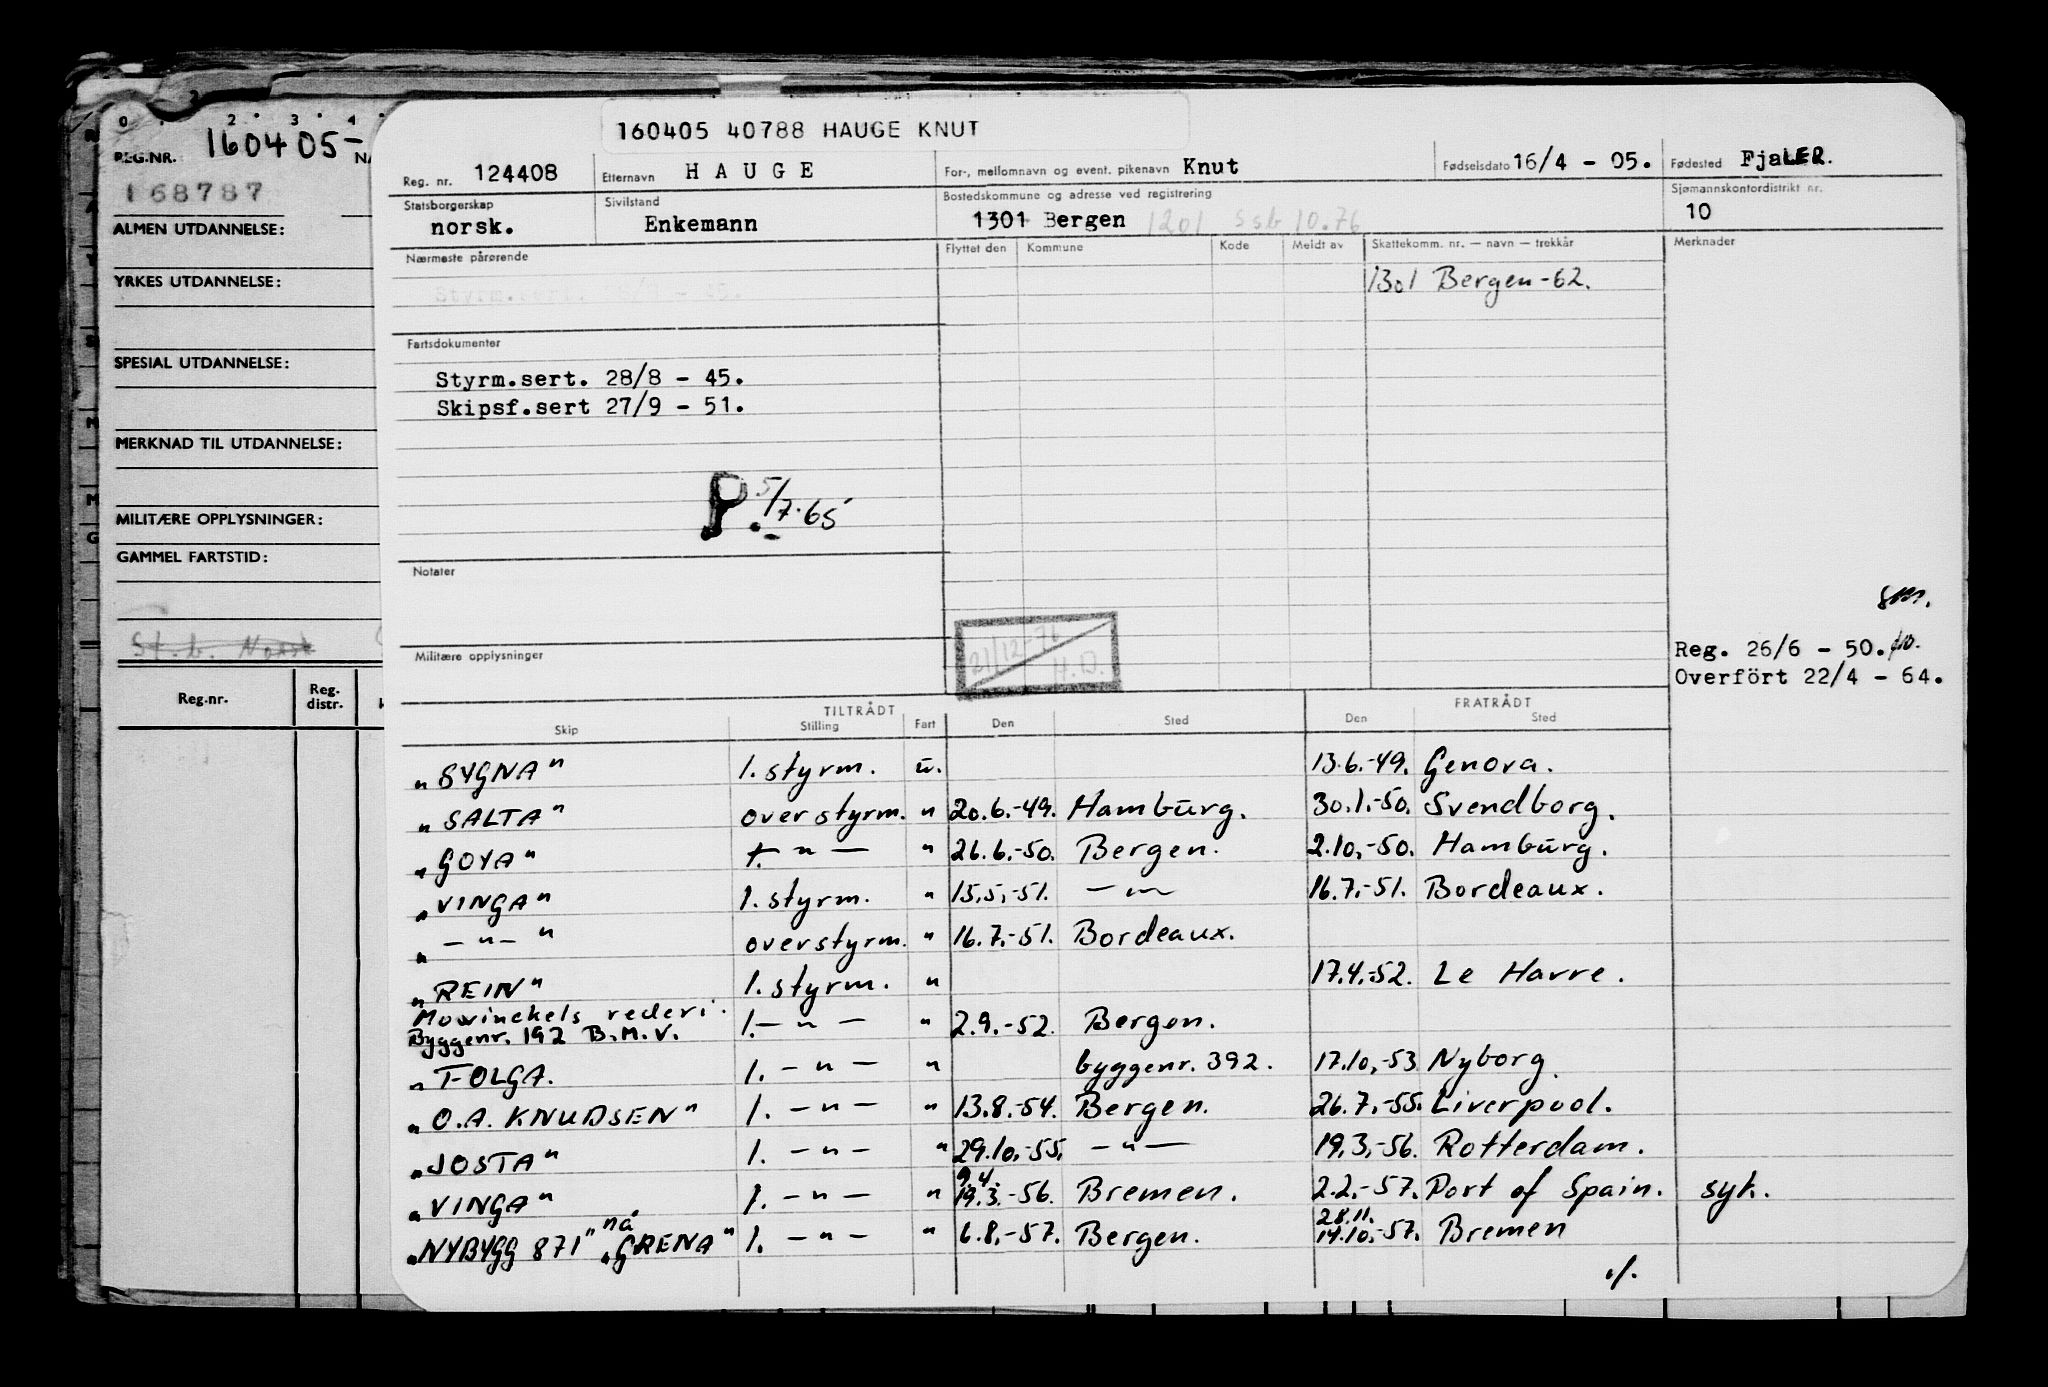 160405 40788 HAUGE KNUT
0 2 3 4
REG.NR. 160405-
168787
ALMEN UTDANNELSE:
YRKES UTDANNELSE:
SPESIAL UTDANNELSE:
MERKNAD TIL UTDANNELSE:
MILITÆRE OPPLYSNINGER:
GAMMEL FARTSTID:
St.b. Norsk
Reg.nr. Reg. distr.
Reg. nr. 124408 Etternavn HAUGE For-, mellomnavn og event. pikenavn Knut Fødselsdato 16/4 - 05. Fødested FjaLER.
Statsborgerskap norsk. Sivilstand Enkemann Bostedskommune og adresse ved registrering 1301 Bergen 1201 Ssb 10.76 Sjømannskontordistrikt nr. 10
Nærmeste pårørende Flyttet den Kommune Kode Meldt av Skattekomm. nr. — navn — trekkår Merknader
1301 Bergen-62.
Fartsdokumenter
Styrm.sert. 28/8 - 45.
Skipsf.sert 27/9 - 51.
P. 5/7.65
Notater
Militære opplysninger
21/12-76 H.D.
Reg. 26/6 - 50.
Overfört 22/4 - 64.
TILTRÅDT FRATRÅDT
Skip Stilling Fart Den Sted Den Sted
"SYGNA" 1. styrm. u. 13.6.-49. Genova.
"SALTA" overstyrm. " 20.6.-49. Hamburg. 30.1.-50. Svendborg.
"GOYA" 1. - " - " 26.6.-50. Bergen. 2.10.-50. Hamburg.
"VINGA" 1. styrm. " 15.5.-51. - " - 16.7.-51. Bordeaux.
" - " - " overstyrm. " 16.7.-51. Bordeaux.
"REIN" 1. styrm. " 17.4.-52. Le Havre.
Mowinckels rederi.
Byggenr. 192 B.M.V. 1. - " - " 2.9.-52. Bergen.
"TOLGA. 1. - " - " byggenr. 392. 17.10.-53 Nyborg.
"O.A. KNUDSEN" 1. - " - " 13.8.-54. Bergen. 26.7.-55. Liverpool.
"JOSTA" 1. - " - " 29.10.-55. - " - 19.3.-56. Rotterdam.
"VINGA" 1. - " - " 9.4. 19.3.-56. Bremen. 2.2.-57. Port of Spain. syk.
"NYBYGG 871" nå "GRENA" 1. - " - " 6.8.-57. Bergen. 28.11. 14.10.-57. Bremen
./.